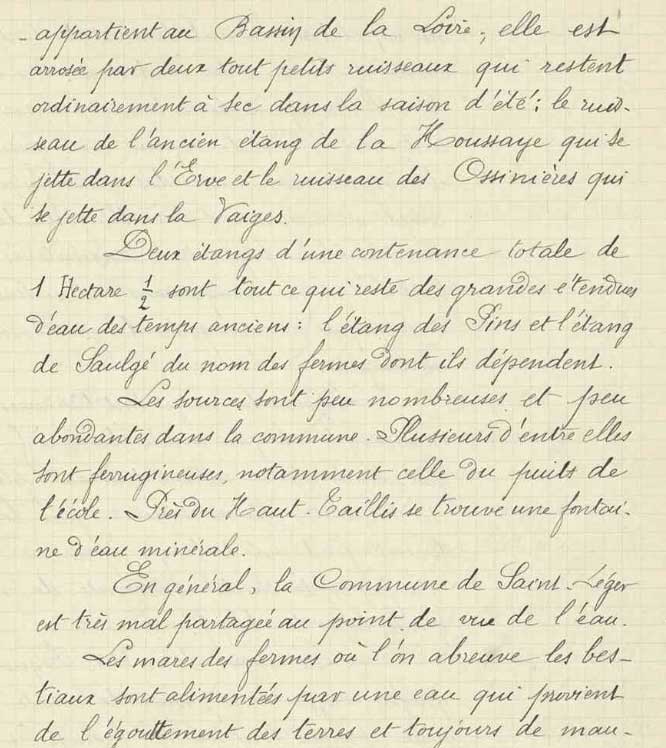 appartient au Bassin de la Loire ; elle est
arrosée par deux tout petits ruisseaux qui restent
ordinairement à sec dans la saison d'été : le ruis-
seau de l'ancien étang de la Houssaye qui se
jette dans l'Erve et le ruisseau des Ossinières qui
se jette dans la Vaiges.
Deux étangs d'une contenance totale de
1 Hectare 1/2 sont tout ce qui reste des grandes étendues
d'eau des temps anciens : l'étang des Pins et l'étang
de Saulgé du nom des fermes dont ils dépendent.
Les sources sont peu nombreuses et peu
abondantes dans la commune. Plusieurs d'entre elles
sont ferrugineuses, notamment celle du puits de
l'école. Près du Haut-Taillis se trouve une fontai-
ne d'eau minérale.
En général, la Commune de Saint-Léger
est très mal partagée au point de vue de l'eau.
Les mares des fermes où l'on abreuve les bes-
tiaux sont alimentées par une eau qui provient
de l'égouttement des terres et toujours de mau-